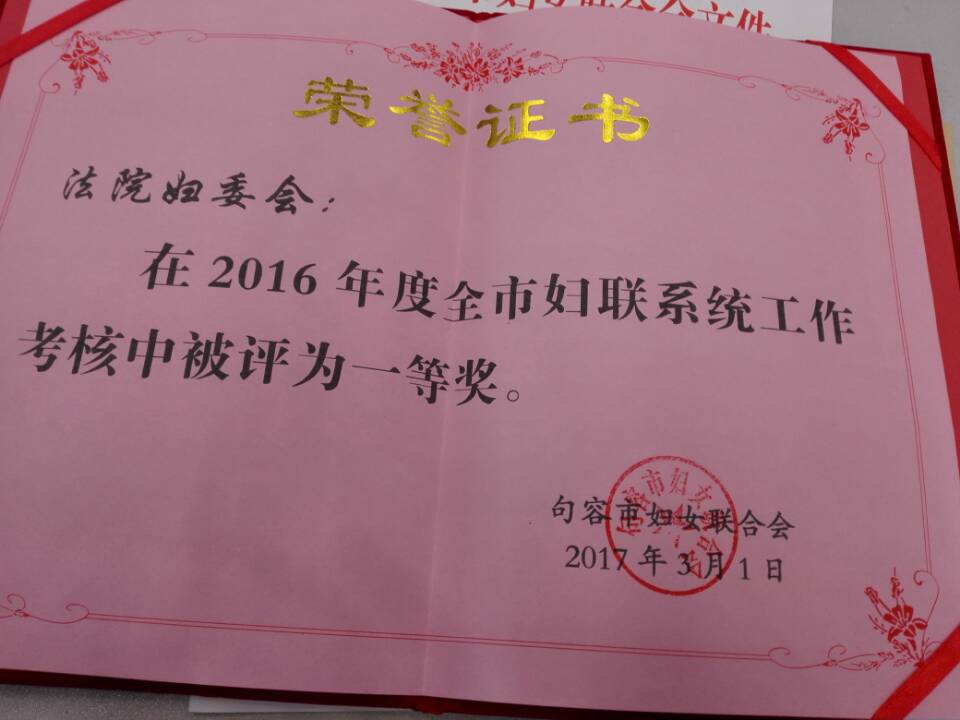 妇女联合会文件
荣誉证书
法院妇委会：
在2016年度全市妇联系统工作
考核中被评为一等奖。
句容市妇女联合会
2017年3月1日
句容市妇女联合会